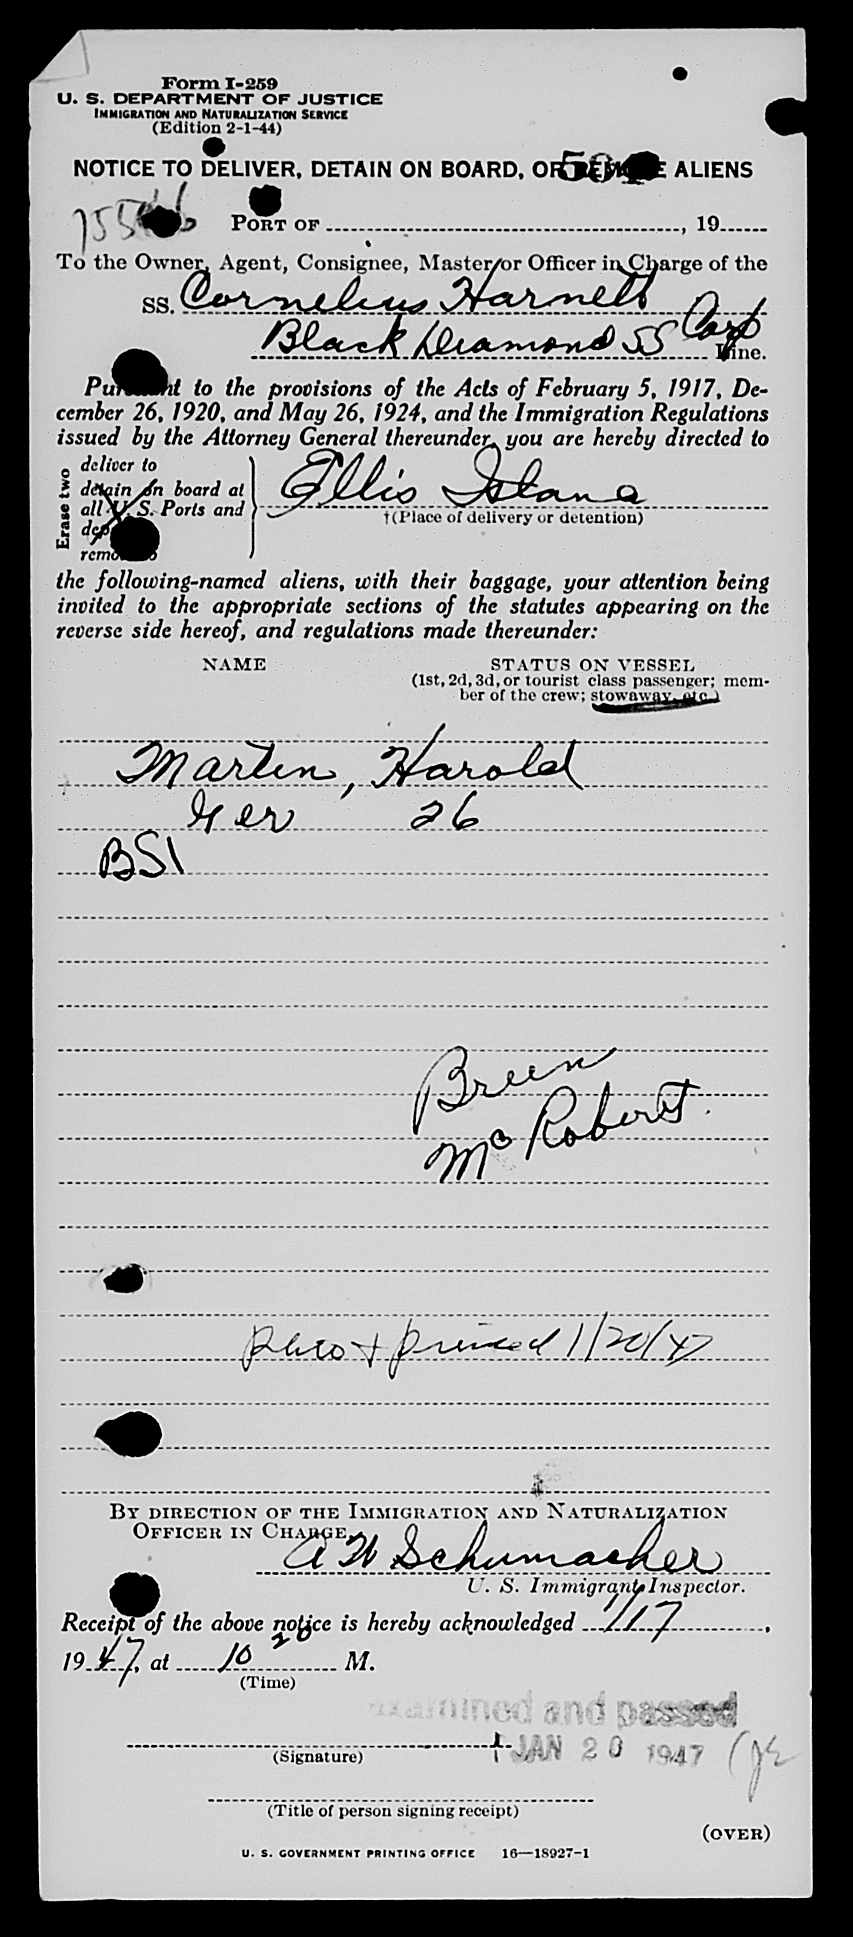 Form I-259
U. S. DEPARTMENT OF JUSTICE
IMMIGRATION AND NATURALIZATION SERVICE
(Edition 2-1-44)
NOTICE TO DELIVER, DETAIN ON BOARD, OR REMOVE ALIENS
PORT OF , 19
To the Owner, Agent, Consignee, Master or Officer in Charge of the
SS. Cornelius Harnett
Black Diamond SS Corp
Line.
Pursuant to the provisions of the Acts of February 5, 1917, De-
cember 26, 1920, and May 26, 1924, and the Immigration Regulations
issued by the Attorney General thereunder, you are hereby directed to
Erase two
deliver to
detain on board at
all U. S. Ports and
Ellis Island
†(Place of delivery or detention)
the following-named aliens, with their baggage, your attention being
invited to the appropriate sections of the statutes appearing on the
reverse side hereof, and regulations made thereunder:
NAME STATUS ON VESSEL
(1st, 2d, 3d, or tourist class passenger; mem-
ber of the crew; stowaway, etc.)
Martin, Harold
Ger 26
BSI
Breen
McRoberts
photo + printed 1/20/47
BY DIRECTION OF THE IMMIGRATION AND NATURALIZATION
OFFICER IN CHARGE
A W Schumacher
U. S. Immigrant Inspector.
Receipt of the above notice is hereby acknowledged 1/17,
1947, at 10 20 M.
(Time)
examined and passed
JAN 20 1947
(Signature)
(Title of person signing receipt)
(OVER)
U. S. GOVERNMENT PRINTING OFFICE 16—18927-1